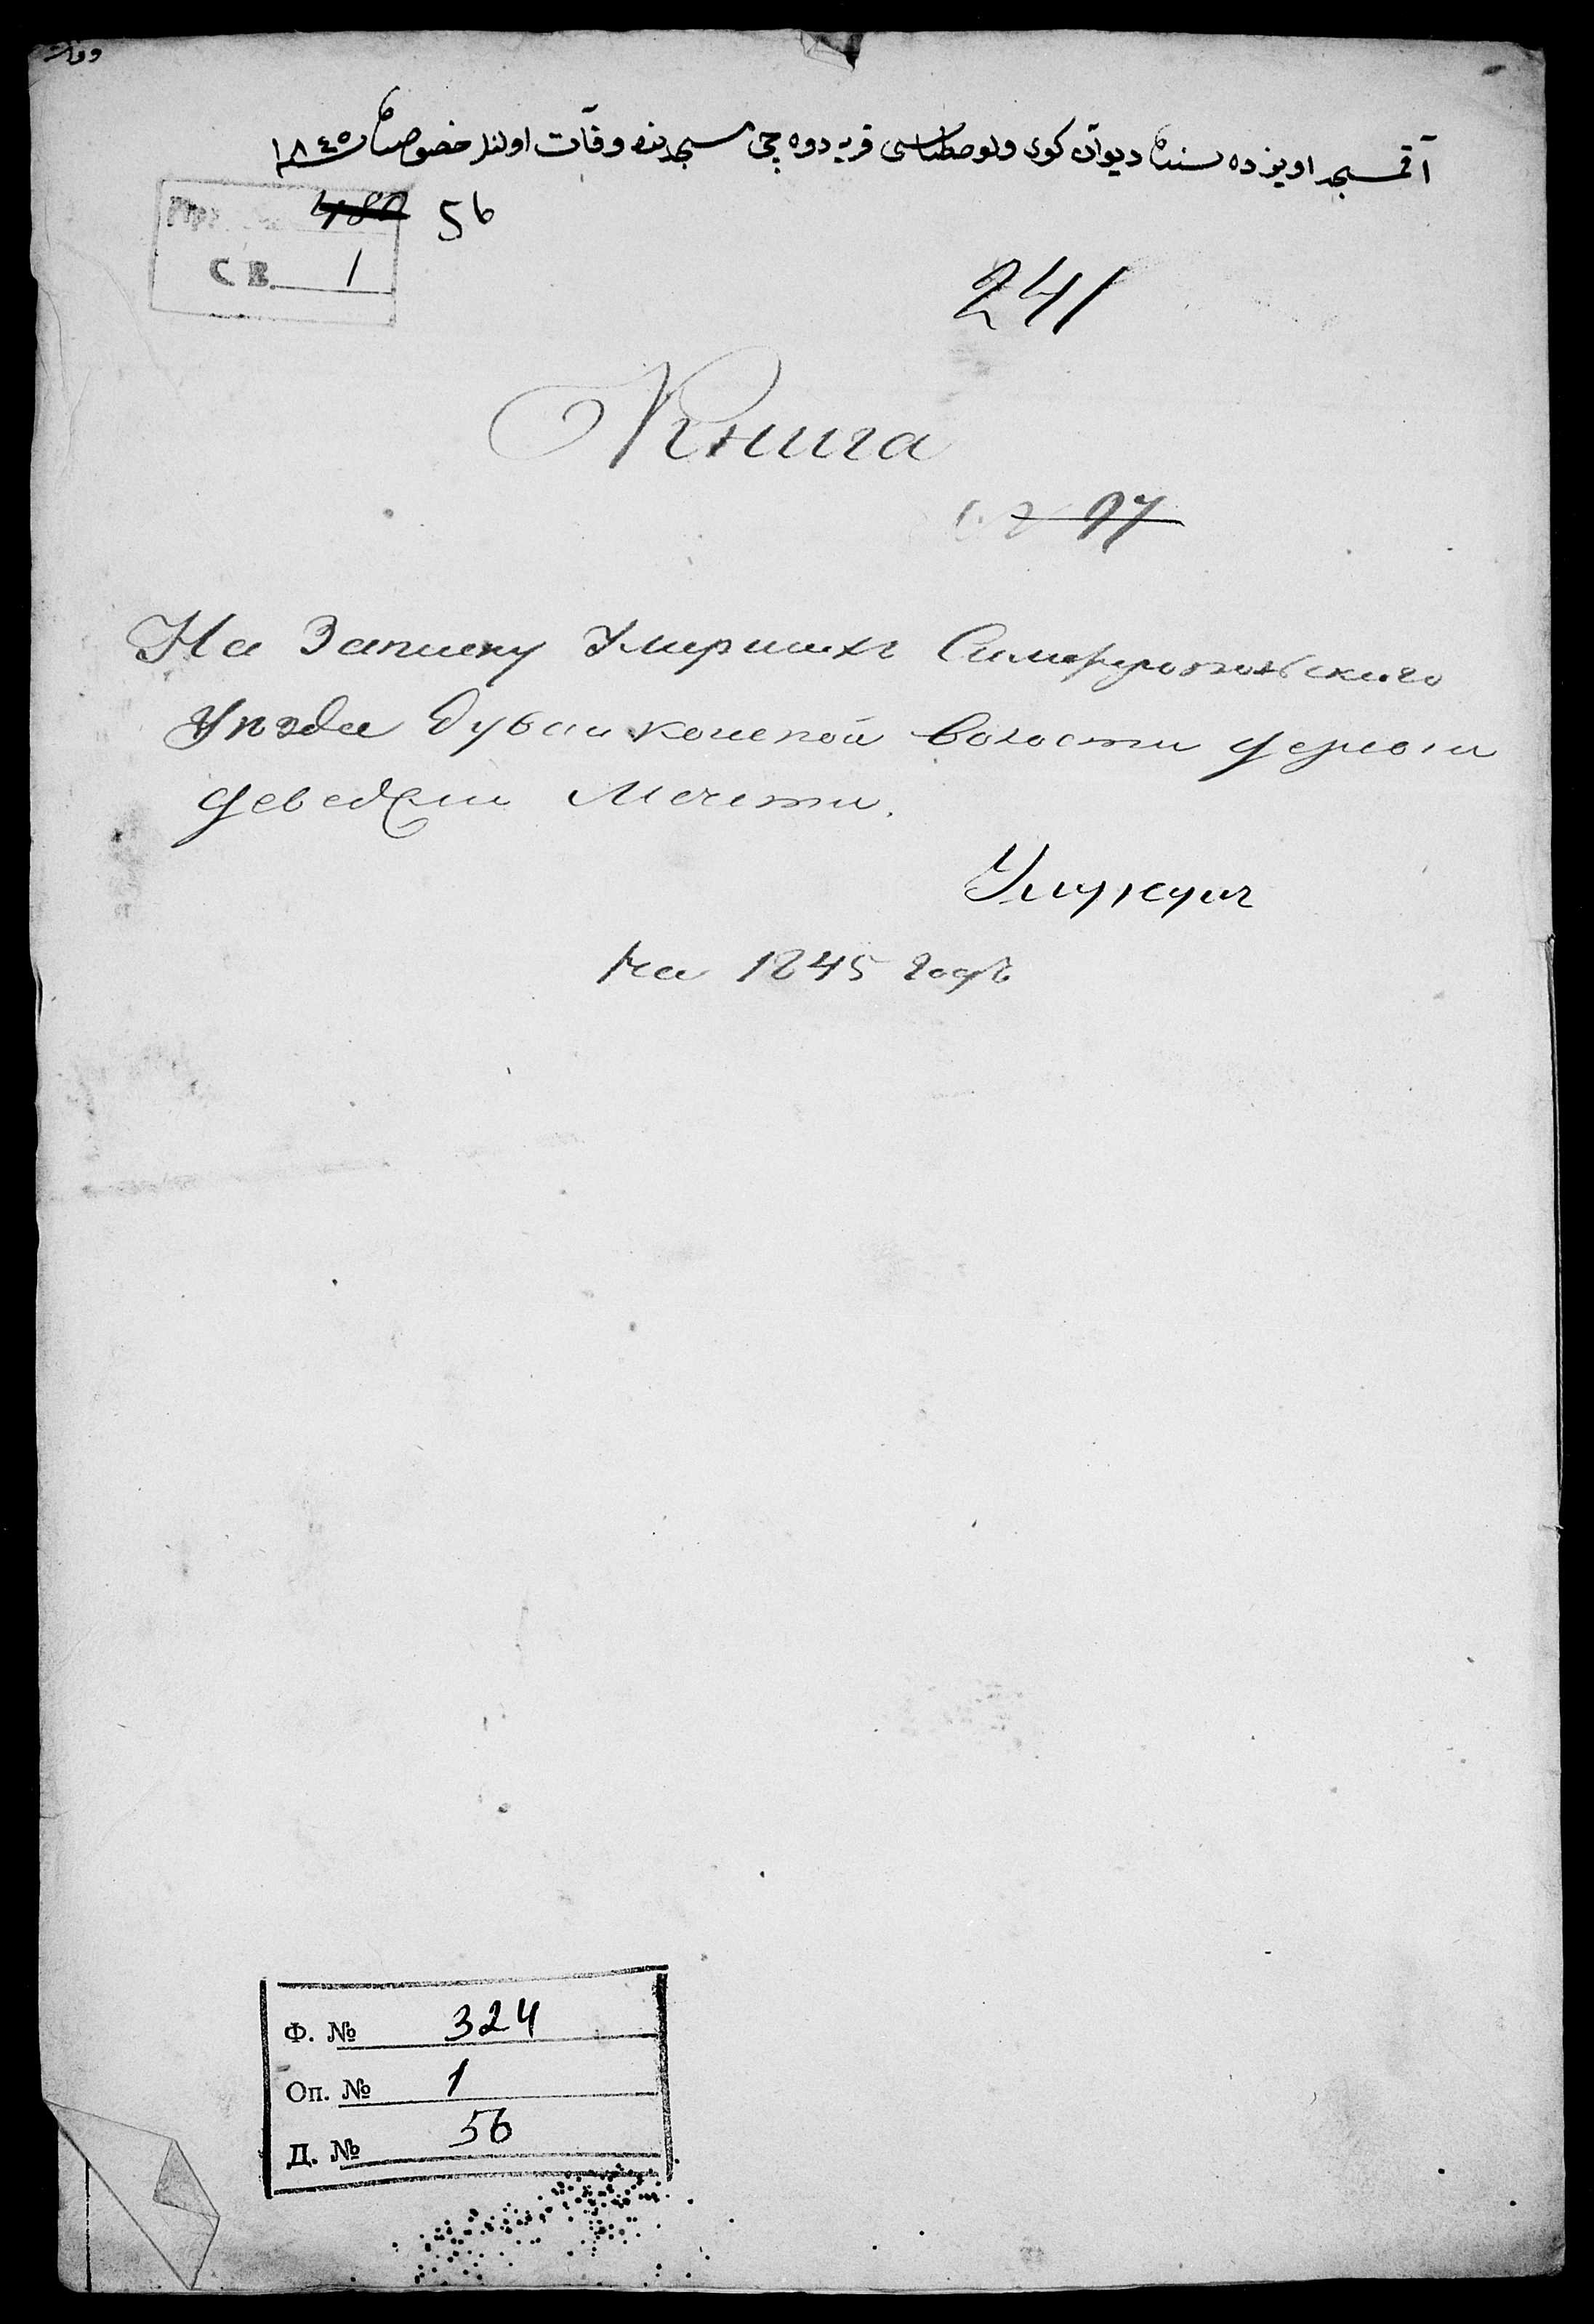 وفات
آقمسجد اویزده سنده دیوان کوی ولوصطناسی قریه دوه چی مسجدنده وفات اولنلر خصوصنده ١٨٤٥
480 56
СВ. 1
241
Книга
97
На Записку Умершихъ Симферопольскаго
Уѣзда Дуванкойской волости Дерѣвни
Деведжи Мечети.
на 1845 годъ
Ф. № 324
Оп. № 1
Д. № 56